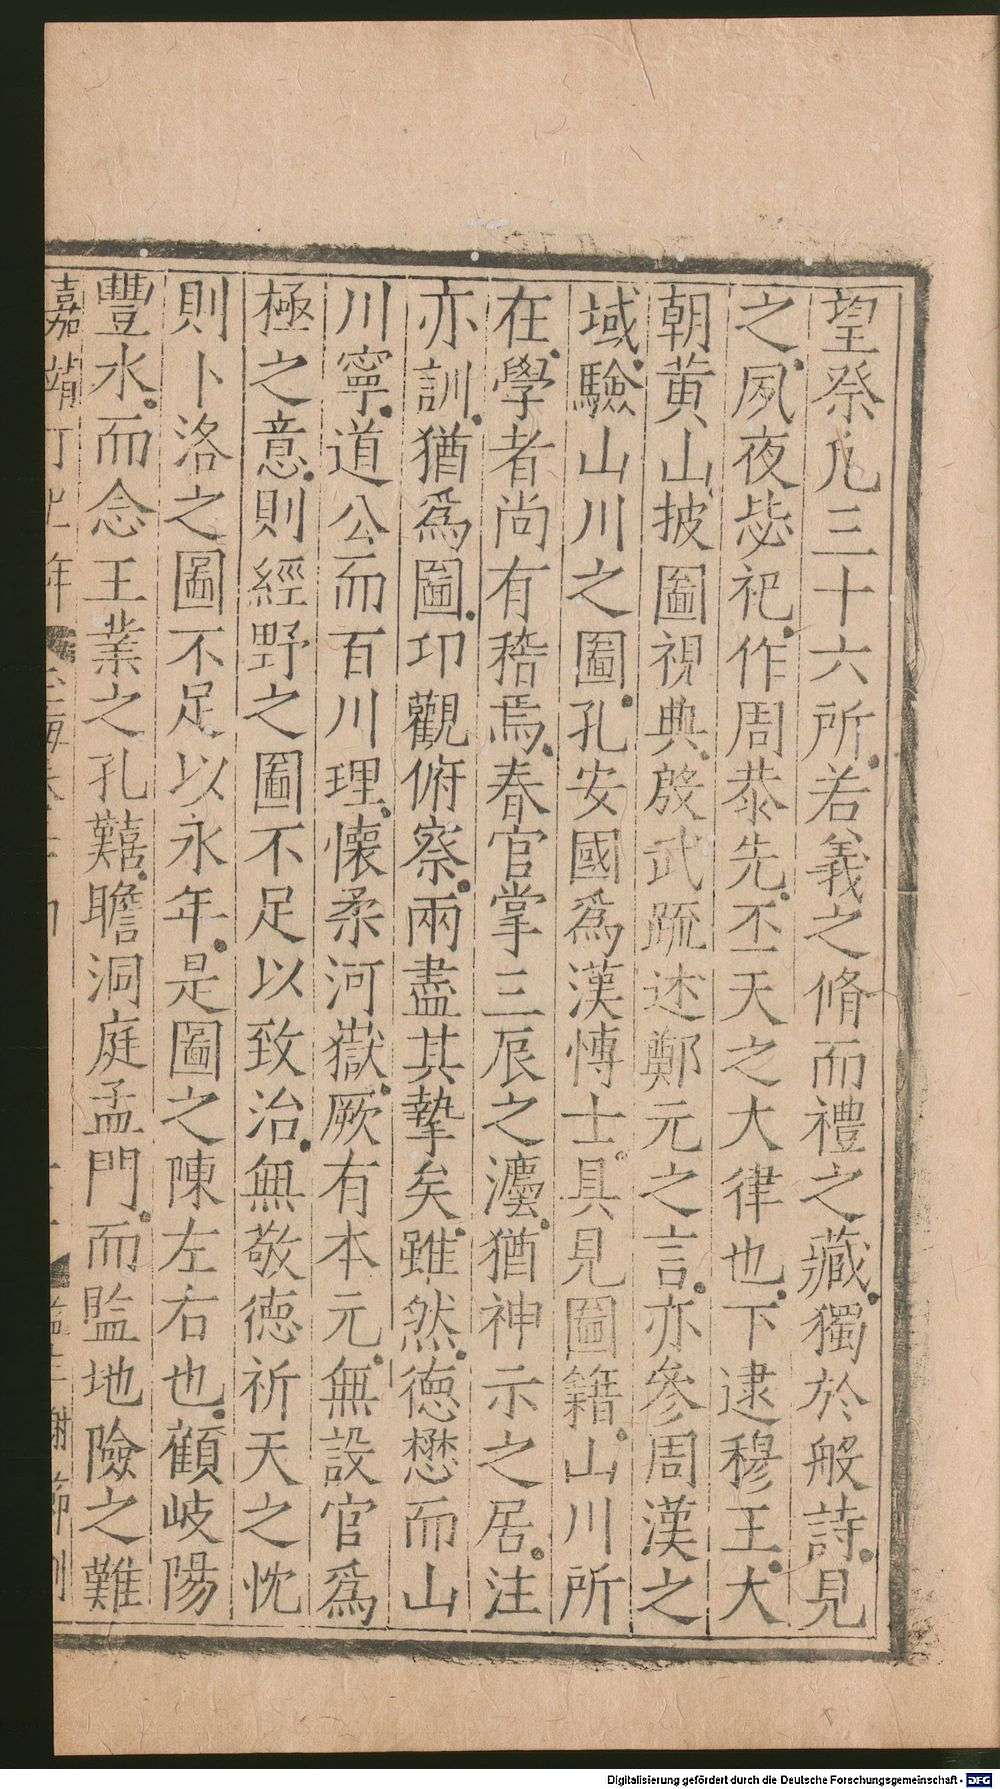 望祭凢三十六所若義之脩而禮之藏獨於般詩見
之夙夜毖祀作周恭先丕天之大律也下逮穆王大
朝黄山披圗視典殷武䟽述鄭元之言亦參周漢之
域驗山川之圗孔安國爲漢愽士具見圗籍山川所
在學者尚有稽焉春官掌三辰之灋猶神示之居注
亦訓猶爲圗卬觀俯察兩盡其摯矣雖然徳懋而山
川寧道公而百川理懐柔河嶽厥有本元無設官爲
極之意則經野之圗不足以致治無敬徳祈天之忱
則卜洛之圗不足以永年是圗之陳左右也顧岐陽
豐水而念王業之孔囏瞻洞庭孟門而監地險之難
嘉靖
Digitalisierung gefördert durch die Deutsche Forschungsgemeinschaft - DFG